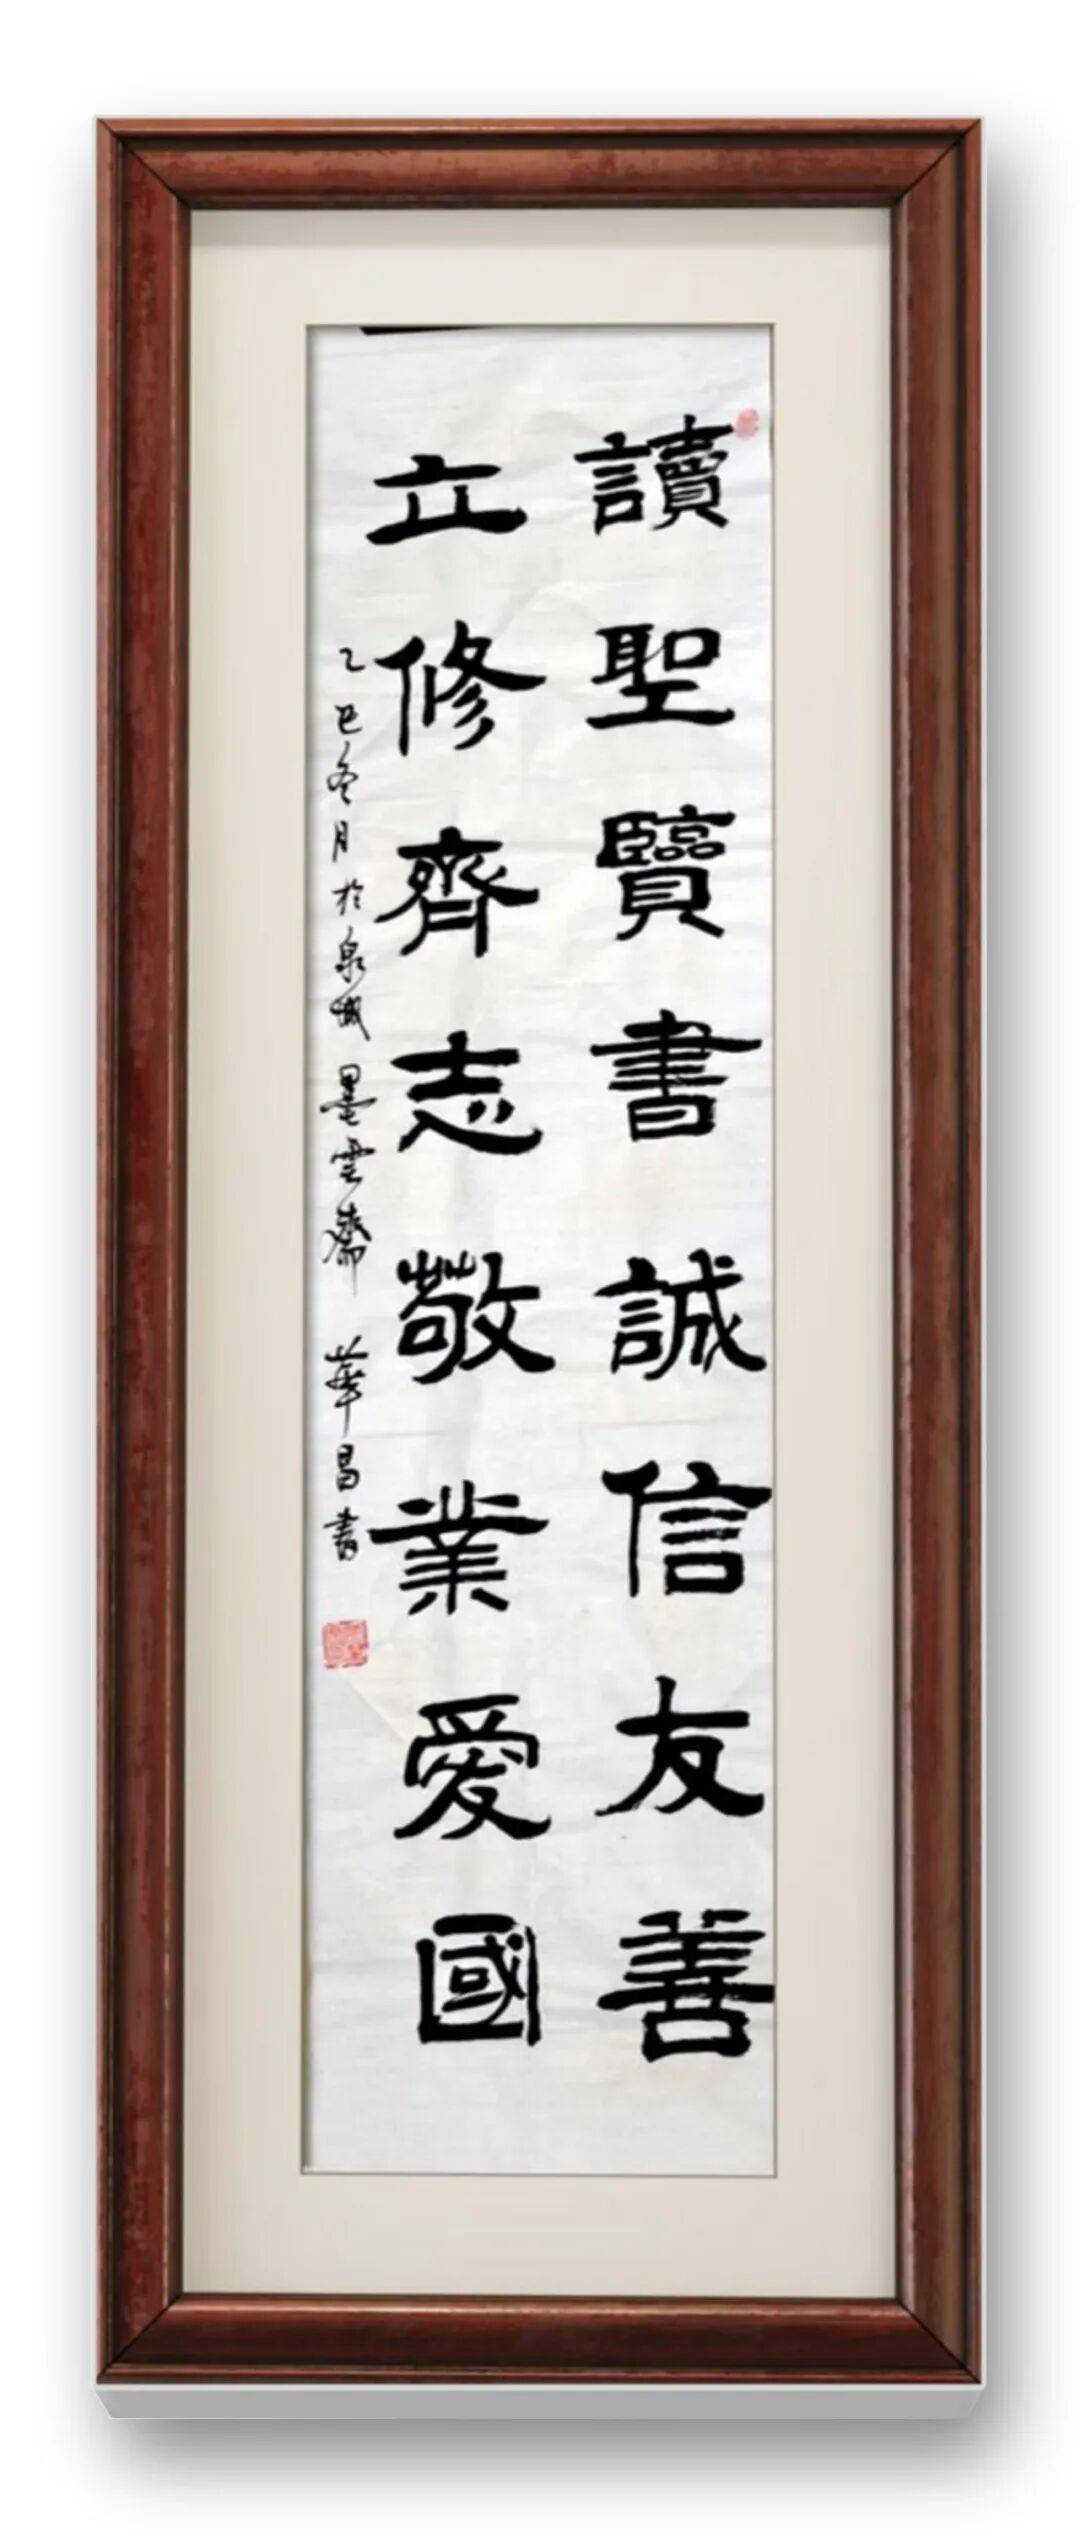 讀聖賢書誠信友善
立修齊志敬業愛國
乙巳冬月於泉城墨雲齋 華昌書